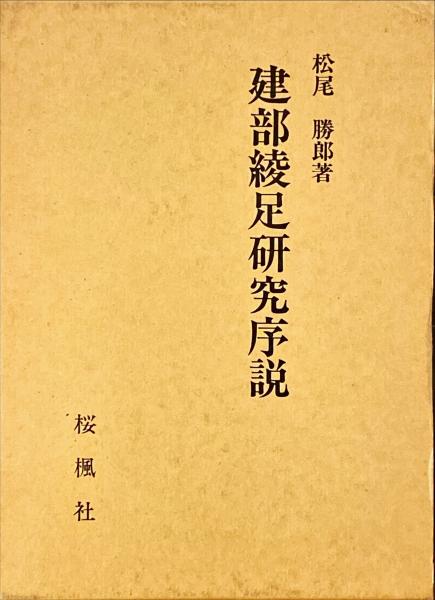 松尾 勝郎著
建部綾足研究序説
桜楓社